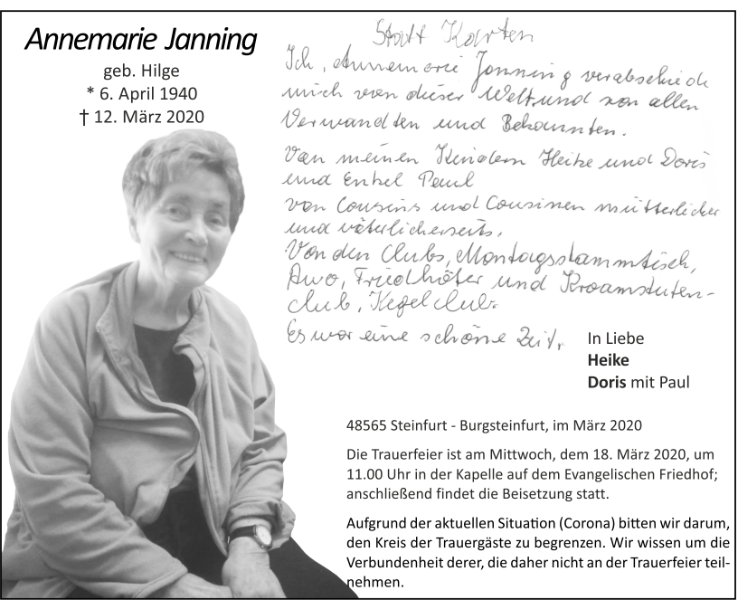 Annemarie Janning
geb. Hilge
* 6. April 1940
† 12. März 2020
Statt Karten
Ich, Annemarie Janning verabschiede
mich von dieser Welt und von allen
Verwandten und Bekannten.
Von meinen Kindern Heike und Doris
und Enkel Paul
von Cousins und Cousinen mütterlicher
und väterlicherseits.
Von den Clubs, Montagsstammtisch,
Awo, Friedhöfer und Kroamstuten-
club, Kegelclub.
Es war eine schöne Zeit.
In Liebe
Heike
Doris mit Paul
48565 Steinfurt - Burgsteinfurt, im März 2020
Die Trauerfeier ist am Mittwoch, dem 18. März 2020, um
11.00 Uhr in der Kapelle auf dem Evangelischen Friedhof;
anschließend findet die Beisetzung statt.
Aufgrund der aktuellen Situation (Corona) bitten wir darum,
den Kreis der Trauergäste zu begrenzen. Wir wissen um die
Verbundenheit derer, die daher nicht an der Trauerfeier teil-
nehmen.